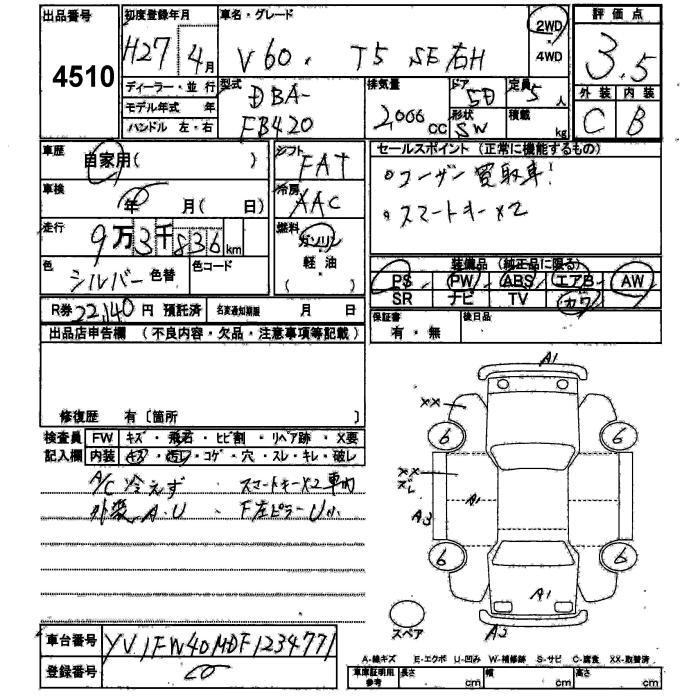 出品番号
4510
初度登録年月
H27年4月
車名・グレード
V60. T5 SE右H
2WD
4WD
評価点
3.5
ディーラー・並行
モデル年式 年
ハンドル 左・右
型式
DBA-
FB420
排気量
2,000CC
ドア
5D
形状
SW
定員
5人
積載
kg
外装 内装
C B
車歴
自家用( )
シフト
FAT
車検
年 月( 日)
冷房
AAC
走行
9万3千836km
燃料
ガソリン
軽油
( )
色
シルバー 色替
色コード
R券 22,140円 預託済
名変通知期限 月 日
セールスポイント(正常に機能するもの)
・スマートキーX2
装備品(純正品に限る)
PS PW ABS エアB AW
SR ナビ TV カワ
保証書
有・無
後日品
出品店申告欄(不良内容・欠品・注意事項等記載)
修復歴 有〔箇所 〕
検査員 FW キズ・飛石・ヒビ割・リペア跡・X要
記入欄 内装 キズ・汚レ・コゲ・穴・スレ・キレ・破レ
A/C冷えず ・スマートキーX2車内
外装A.U ・F左ピラーU小
A1
XX
6 6
XX
XL
A1
A3
6 6
A1
A2
スペア
車台番号 YV1FW40MDF1234771
登録番号
A-線キズ E-エクボ U-凹み W-補修跡 S-サビ C-腐食 XX-取替済
車庫証明用参考 長さ cm 幅 cm 高さ cm